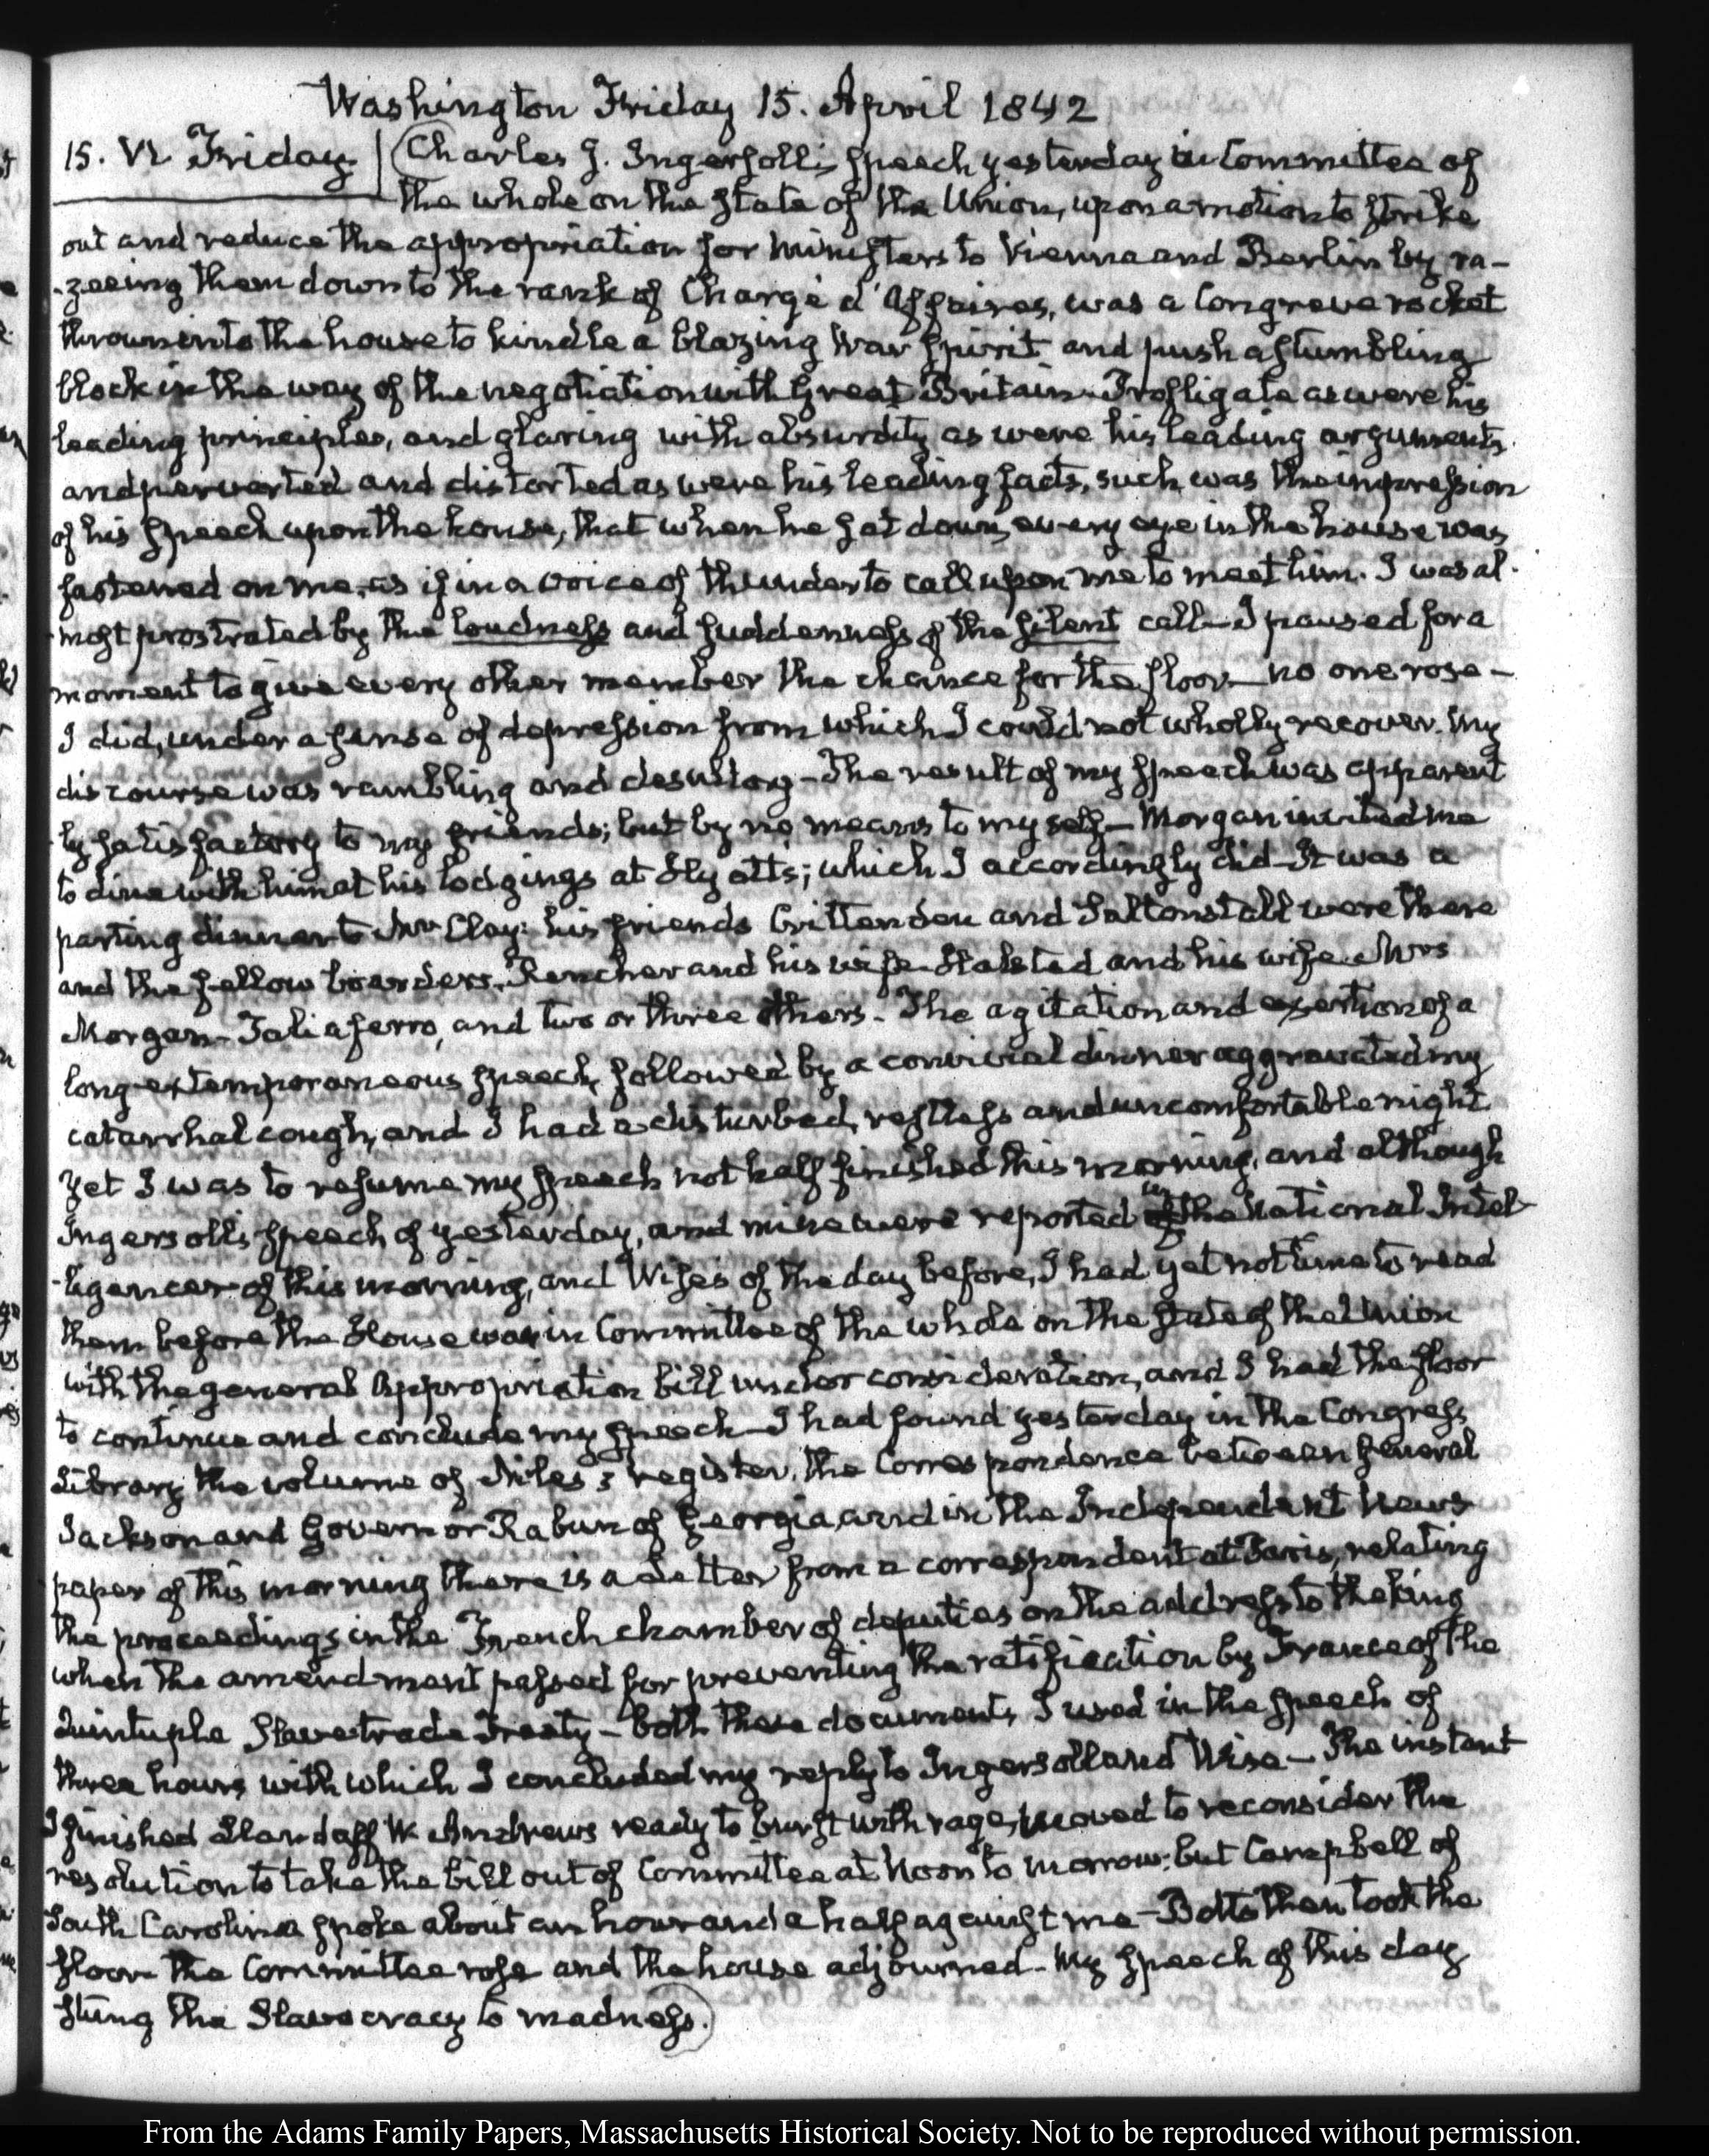 Washington Friday 15. April 1842
15. VI. Friday. Charles J. Ingersoll's speech yesterday in Committee of
the whole on the state of the Union, upon a motion to strike
out and reduce the appropriation for Ministers to Vienna and Berlin by ra-
-zeeing them down to the rank of Chargé d'Affaires, was a Congreve rocket
thrown into the house to kindle a blazing War spirit and push a stumbling
block in the way of the negotiation with Great Britain. Profligate as were his
leading principles, and glaring with absurdity as were his leading arguments,
and perverted and distorted as were his leading facts, such was the impression
of his speech upon the house, that when he sat down, every eye in the house was
fastened on me, as if in a voice of thunder to call upon me to meet him. I was al-
-most prostrated by the loudness and suddenness of the silent call—I paused for a
moment to give every other member the chance for the floor—no one rose—
I did, under a sense of depression from which I could not wholly recover. My
discourse was rambling and desultory—The result of my speech was apparent
-ly satisfactory to my friends; but by no means to myself—Morgan invited me
to dine with him at his lodgings at Hyatt's; which I accordingly did—It was a
parting dinner to Mr Clay: his friends Crittenden and Saltonstall were there
and the fellow boarders. Rencher and his wife—Halsted and his wife Mrs
Morgan—Taliaferro, and two or three others—The agitation and exertion of a
long extemporaneous speech, followed by a convivial dinner aggravated my
catarrhal cough, and I had a disturbed, restless and uncomfortable night.
Yet I was to resume my speech not half finished this morning, and although
Ingersoll's speech of yesterday, and mine were reported in the National Intel-
-ligencer of this morning, and Wise's of the day before, I had yet not time to read
them before the House was in Committee of the whole on the state of the Union
with the general Appropriation bill under consideration, and I had the floor
to continue and conclude my speech—I had found yesterday in the Congress
Library, the volume of Niles's register, the Correspondence between General
Jackson and Governor Rabun of Georgia, and in the Independent News
paper of this morning there is a Letter from a correspondent at Paris, relating
the proceedings in the French chamber of deputies on the address to the king
when the amendment passed for preventing the ratification by France of the
Quintuple Slavetrade Treaty—both these documents I used in the speech of
three hours with which I concluded my reply to Ingersoll and Wise—The instant
I finished Landaff W. Andrews ready to burst with rage, moved to reconsider the
resolution to take the bill out of Committee at Noon to morrow: but Campbell of
South Carolina spoke about an hour and a half against me—Botts then took the
floor—the Committee rose and the house adjourned—My speech of this day
stung the Slavocracy to madness.
From the Adams Family Papers, Massachusetts Historical Society. Not to be reproduced without permission.